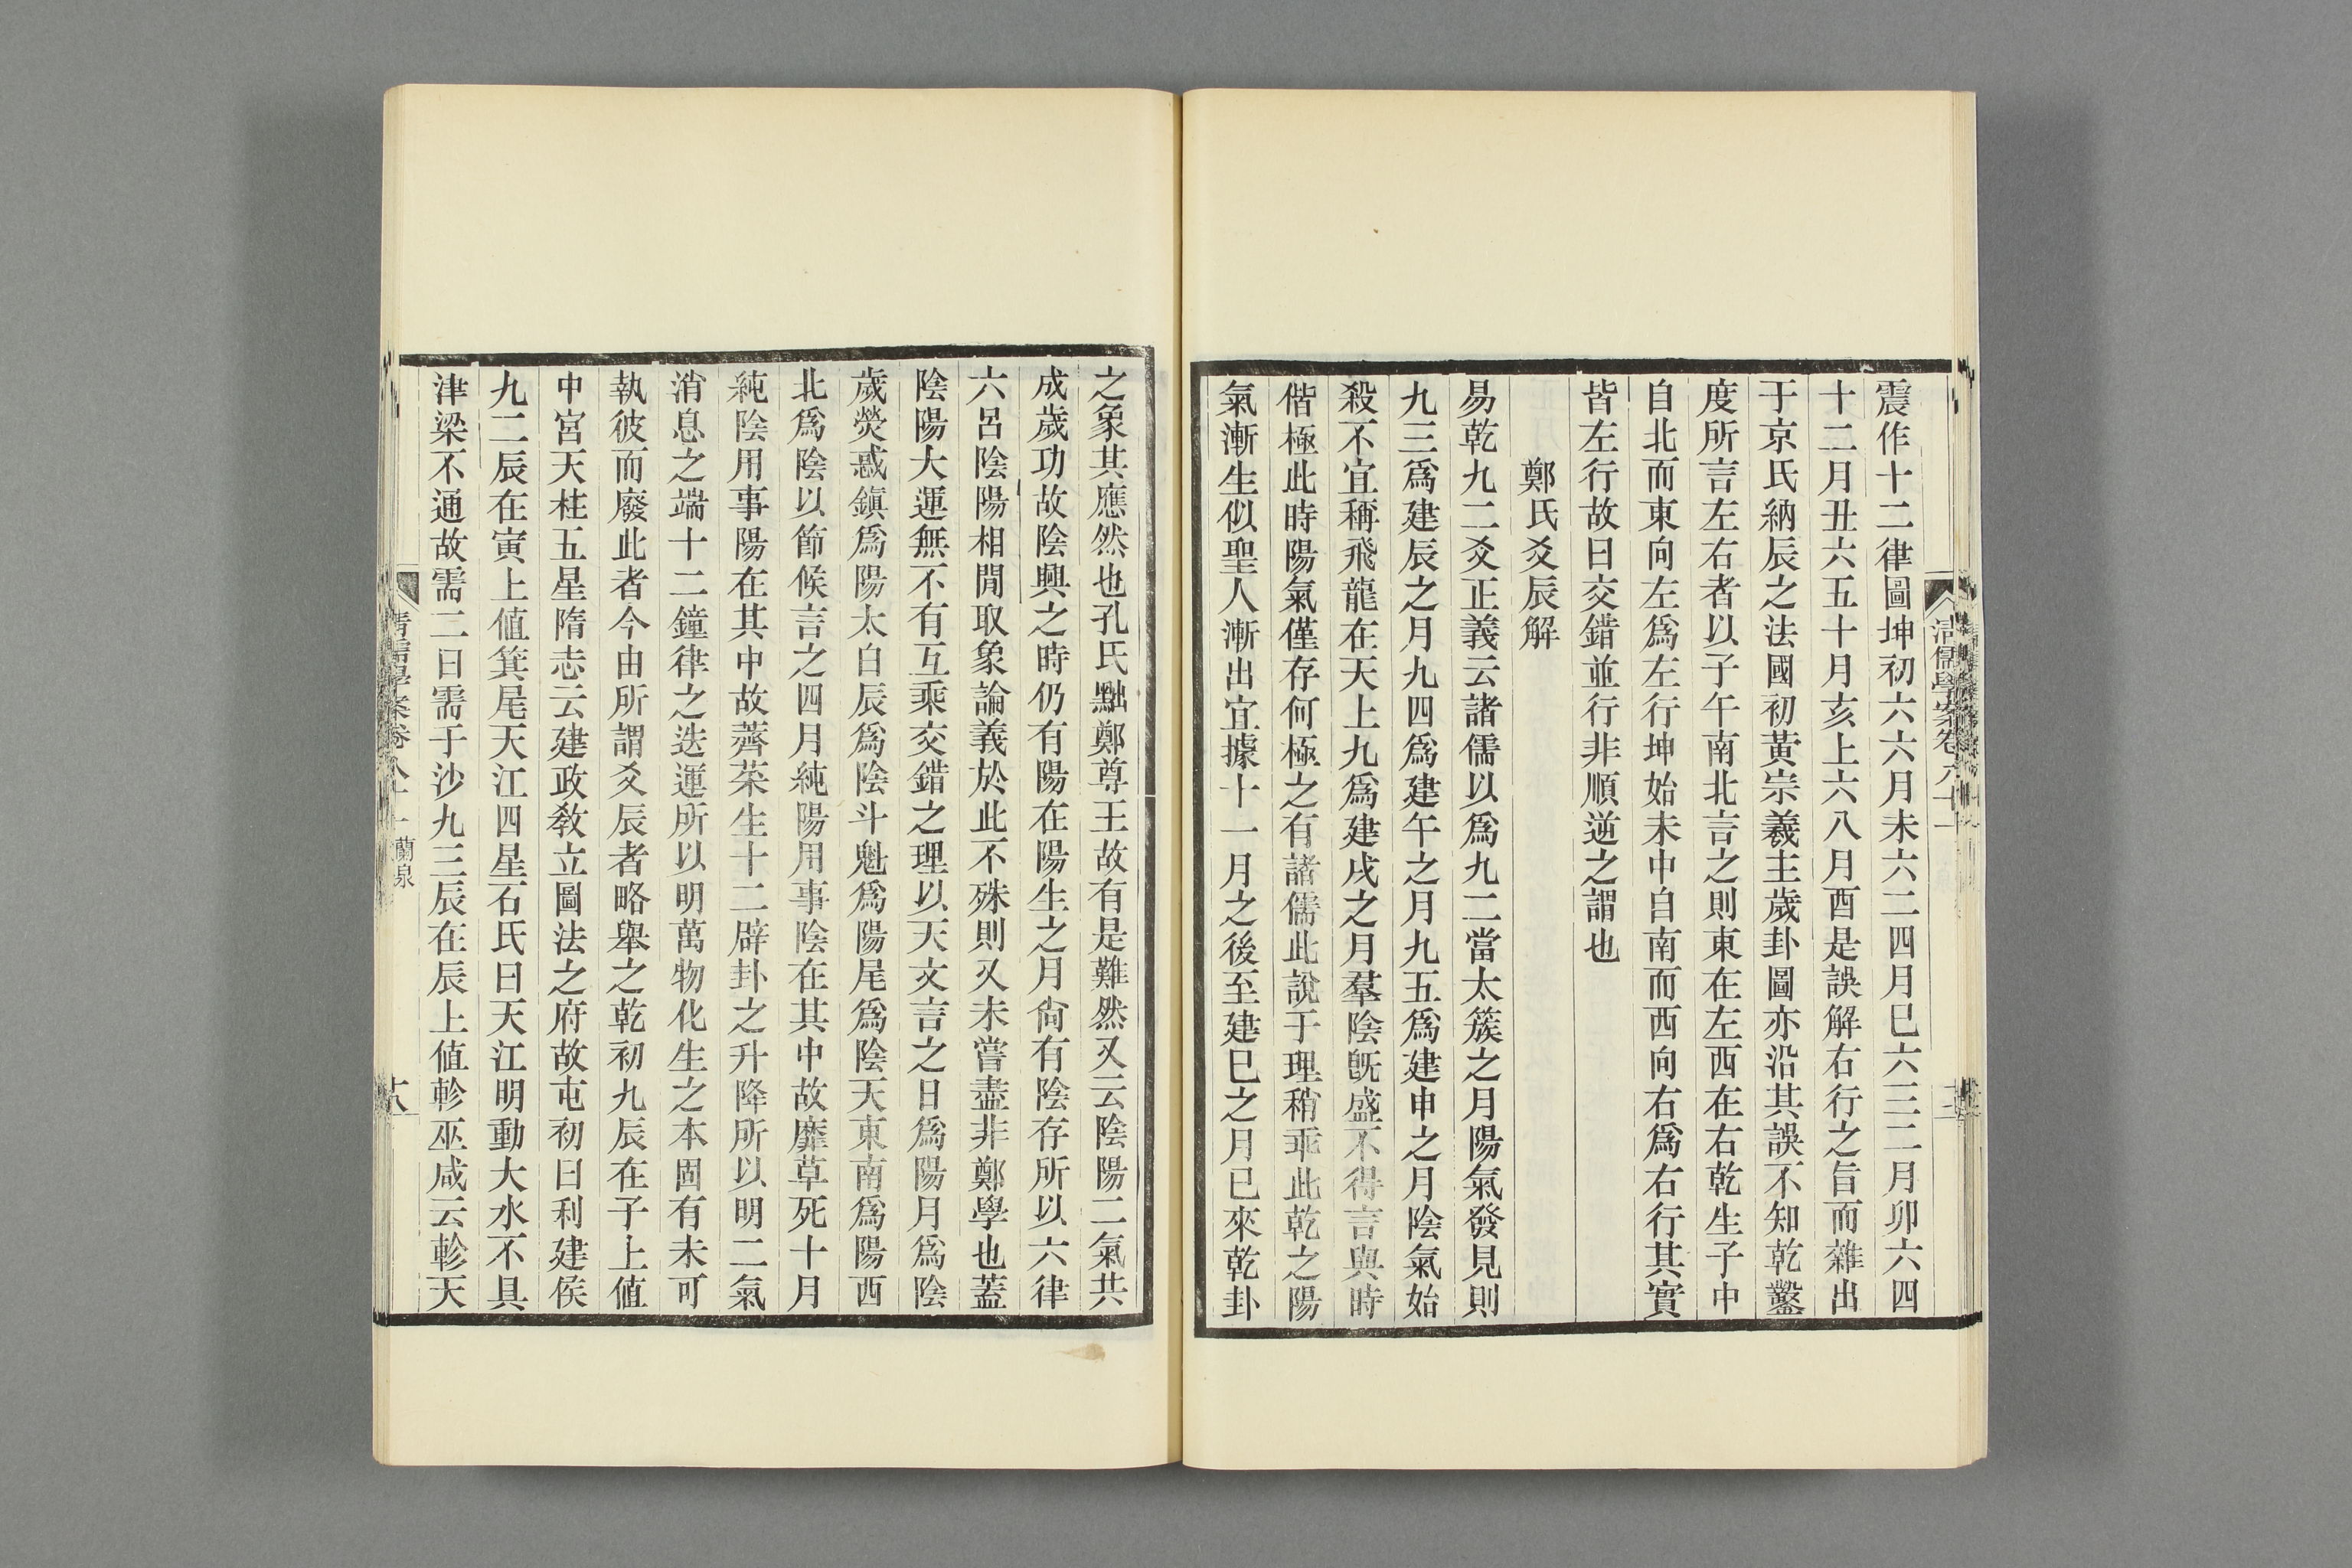 震作十二律圖坤初六六月未六二四月巳六三二月卯六四
十二月丑六五十月亥上六八月酉是誤解右行之旨而雜出
于京氏納辰之法國初黃宗羲主歲卦圖亦沿其誤不知乾鑿
度所言左右者以子午南北言之則東在左西在右乾生子中
自北而東向左爲左行坤始未中自南而西向右爲右行其實
皆左行故曰交錯並行非順逆之謂也
鄭氏爻辰解
易乾九二爻正義云諸儒以爲九二當太簇之月陽氣發見則
九三爲建辰之月九四爲建午之月九五爲建申之月陰氣始
殺不宜稱飛龍在天上九爲建戌之月羣陰旣盛不得言與時
偕極此時陽氣僅存何極之有諸儒此說于理稍乖此乾之陽
氣漸生似聖人漸出宜據十一月之後至建巳之月已來乾卦
之象其應然也孔氏黜鄭尊王故有是難然又云陰陽二氣共
成歲功故陰興之時仍有陽在陽生之月尙有陰存所以六律
六呂陰陽相間取象論義於此不殊則又未嘗盡非鄭學也蓋
陰陽大運無不有互乘交錯之理以天文言之日爲陽月爲陰
歲熒惑鎭爲陽太白辰爲陰斗魁爲陽尾爲陰天東南爲陽西
北爲陰以節候言之四月純陽用事陰在其中故靡草死十月
純陰用事陽在其中故薺菜生十二辟卦之升降所以明二氣
消息之端十二鐘律之迭運所以明萬物化生之本固有未可
執彼而廢此者今由所謂爻辰者略舉之乾初九辰在子上值
中宮天柱五星隋志云建政敎立圖法之府故屯初曰利建侯
九二辰在寅上値箕尾天江四星石氏曰天江明動大水不具
津梁不通故需二曰需于沙九三辰在辰上値軫巫咸云軫天
清儒學案卷八十一 蘭泉
十八